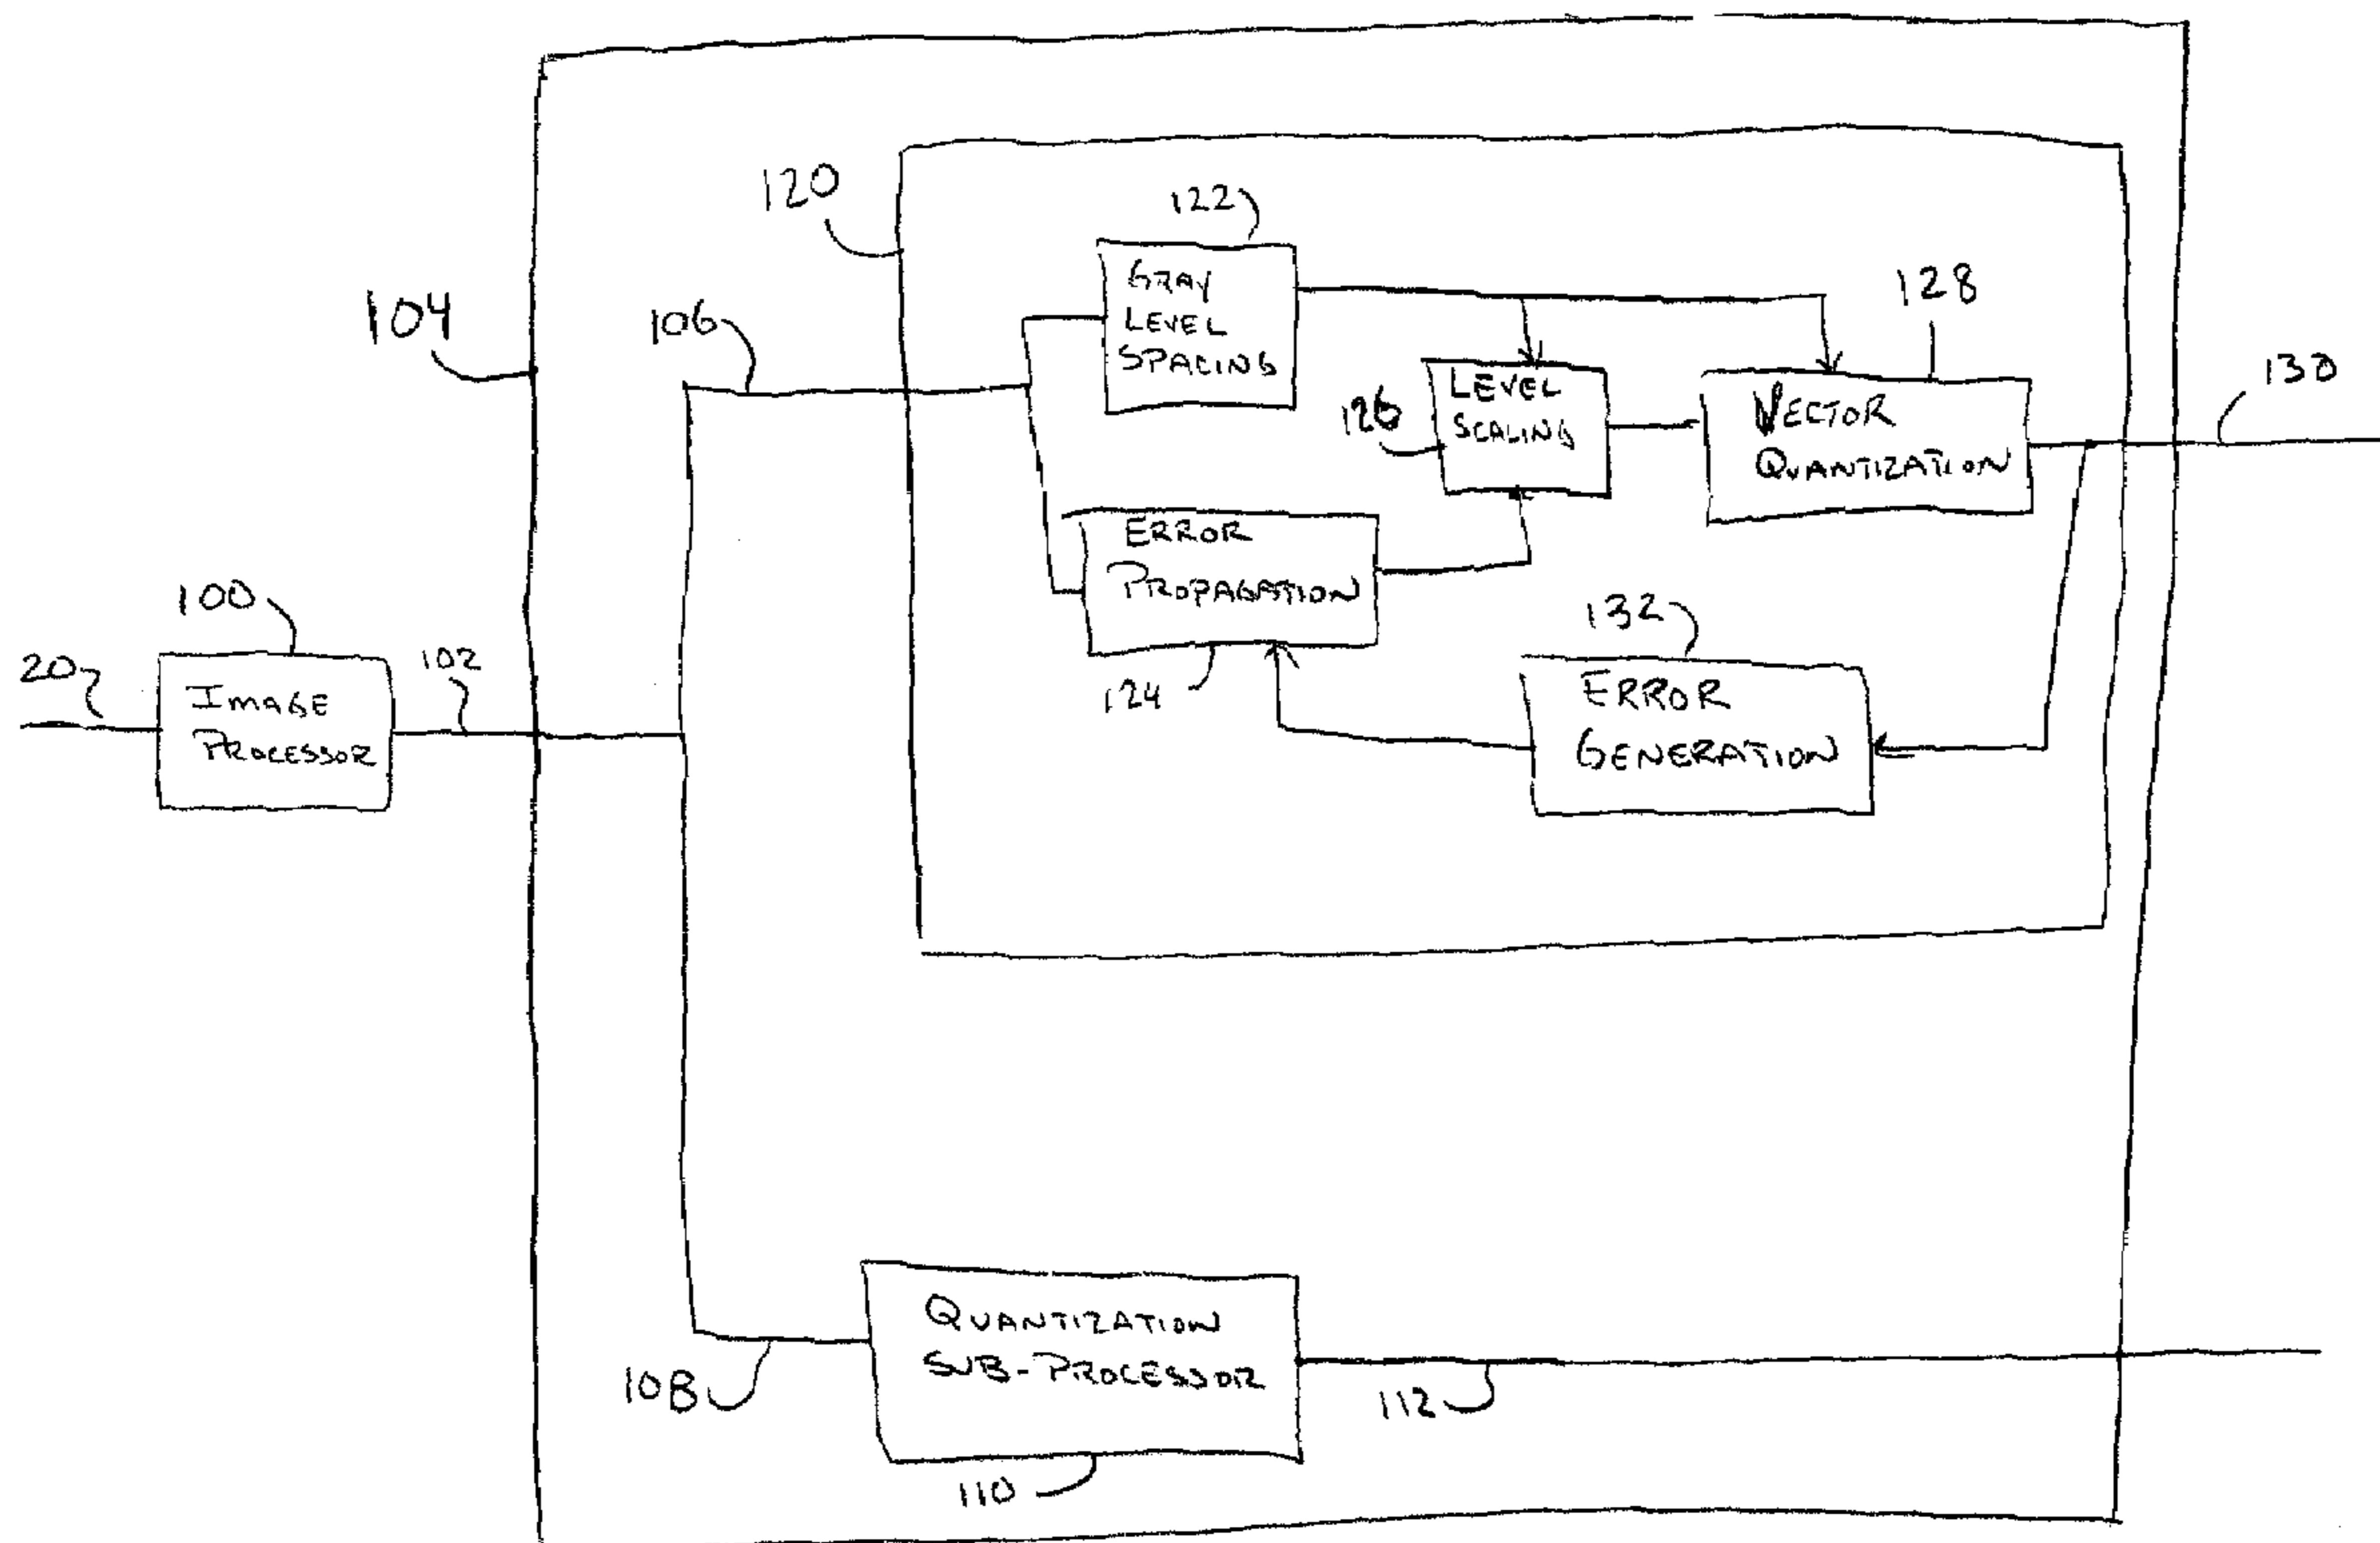 120
122
GRAY
LEVEL
SPACING
104
106
128
130
126
LEVEL
SCALING
VECTOR
QUANTIZATION
ERROR
PROPAGATION
100
132
20
102
124
IMAGE
PROCESSOR
ERROR
GENERATION
QUANTIZATION
SUB-PROCESSOR
108
112
110